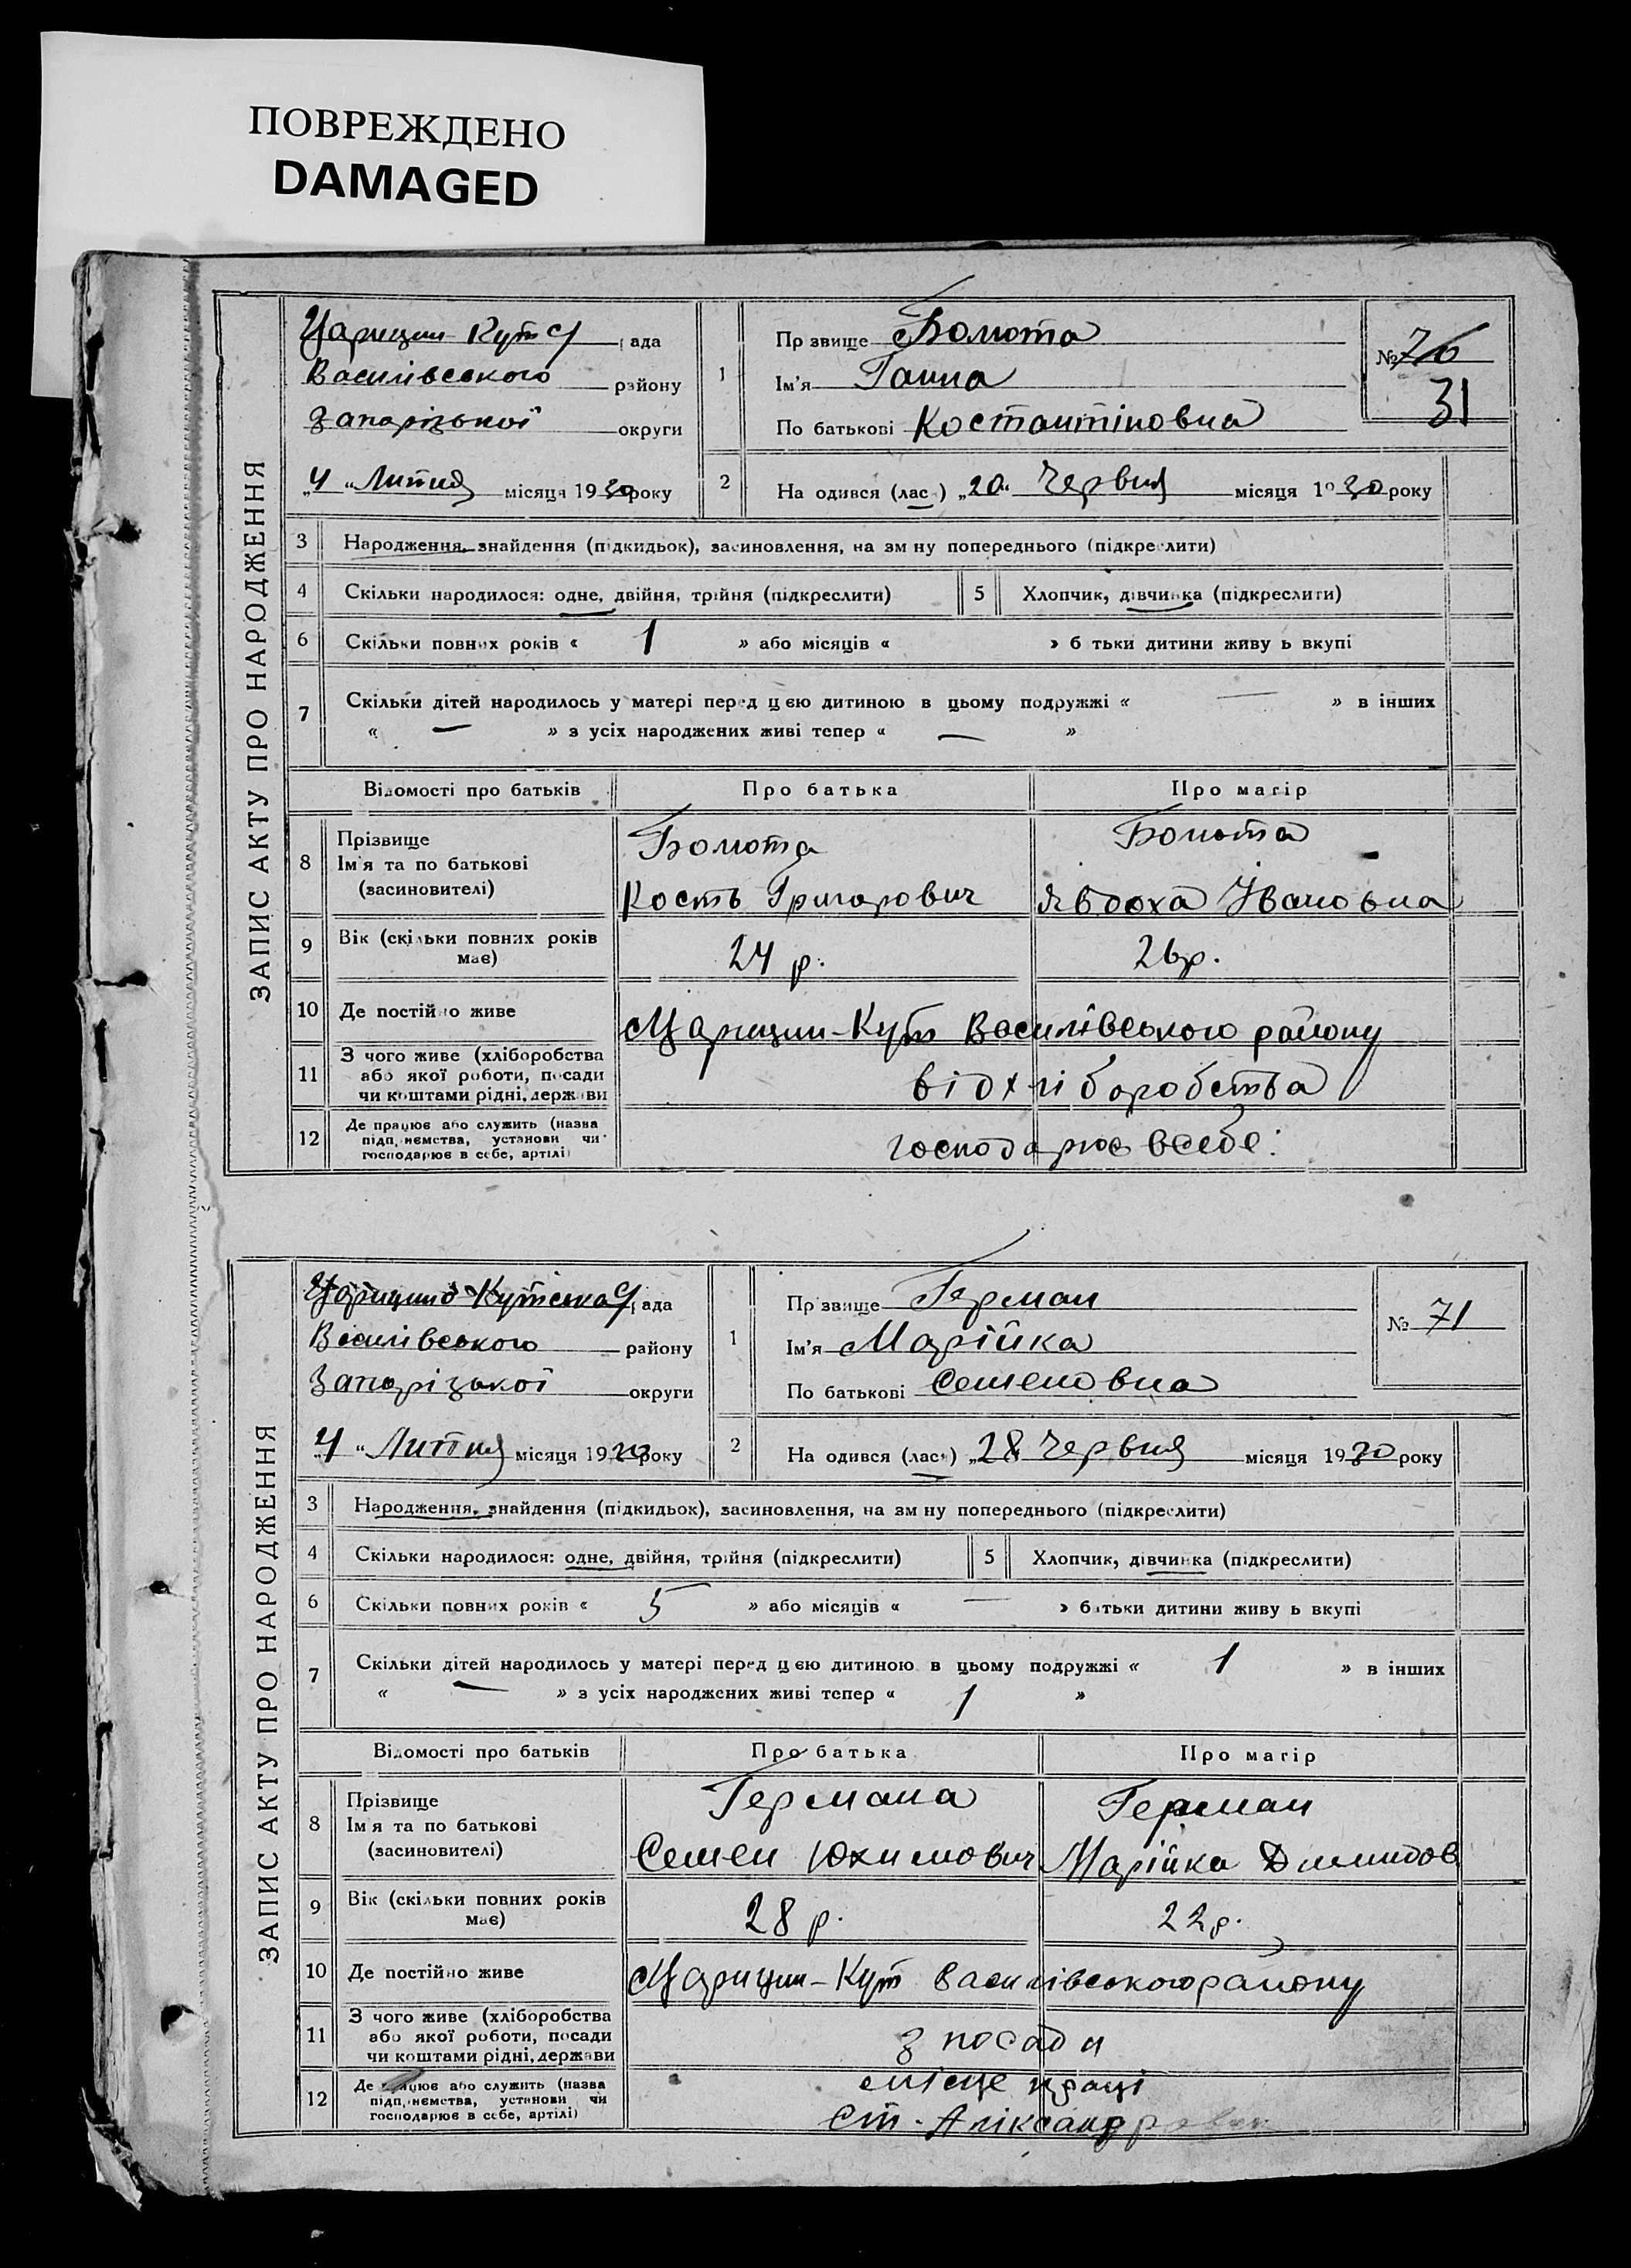 ПОВРЕЖДЕНО
DAMAGED
ЗАПИС АКТУ ПРО НАРОДЖЕННЯ
Царицин-Кутс рада
Василівського району
Запорізької округи
„4“ Липня місяця 1930 року
1
Пр звище Болюта
Ім'я Ганна
По батькові Костантіновна
№ 70
31
2
На одився (лас ) „20“ Червня місяця 1930 року
3 Народження, знайдення (підкидьок), засиновлення, на зм ну попереднього (підкреслити)
4 Скільки народилося: одне, двійня, трійня (підкреслити) 5 Хлопчик, дівчинка (підкреслити)
6 Скільки повних років « 1 » або місяців « » б тьки дитини живу ь вкупі
7 Скільки дітей народилось у матері перед цією дитиною в цьому подружжі « — » в інших
« — » з усіх народжених живі тепер « — »
Відомості про батьків Про батька Про матір
8 Прізвище
Ім'я та по батькові
(засиновителі)
Болюта Болюта
Кость Григорович Явдоха Івановна
9 Вік (скільки повних років має) 24 р. 26 р.
10 Де постійно живе Царицин-Кут Василівського району
11 З чого живе (хліборобства
або якої роботи, посади
чи коштами рідні, держави
від хліборобства
12 Де працює або служить (назва
підприємства, установи чи
господарює в себе, артілі)
господарює в себе.
ЗАПИС АКТУ ПРО НАРОДЖЕННЯ
Царицино-Кутська рада
Василівського району
Запорізької округи
„4“ Липня місяця 1930 року
1
Пр звище Герман
Ім'я Марійка
По батькові Семеновна
№ 71
2
На одився (лас ) „28 Червня місяця 1930 року
3 Народження, знайдення (підкидьок), засиновлення, на зм ну попереднього (підкреслити)
4 Скільки народилося: одне, двійня, трійня (підкреслити) 5 Хлопчик, дівчинка (підкреслити)
6 Скільки повних років « 5 » або місяців « — » батьки дитини живу ь вкупі
7 Скільки дітей народилось у матері перед цією дитиною в цьому подружжі « 1 » в інших
« — » з усіх народжених живі тепер « 1 »
Відомості про батьків Про батька Про матір
8 Прізвище
Ім'я та по батькові
(засиновителі)
Германа Герман
Семен Юхимович Марійка Димидов
9 Вік (скільки повних років має) 28 р. 22 р.
10 Де постійно живе Царицин-Кут Василівського району
11 З чого живе (хліборобства
або якої роботи, посади
чи коштами рідні, держави
з посади
12 Де працює або служить (назва
підприємства, установи чи
господарює в себе, артілі)
місце праці
Ст. Аліксандровск